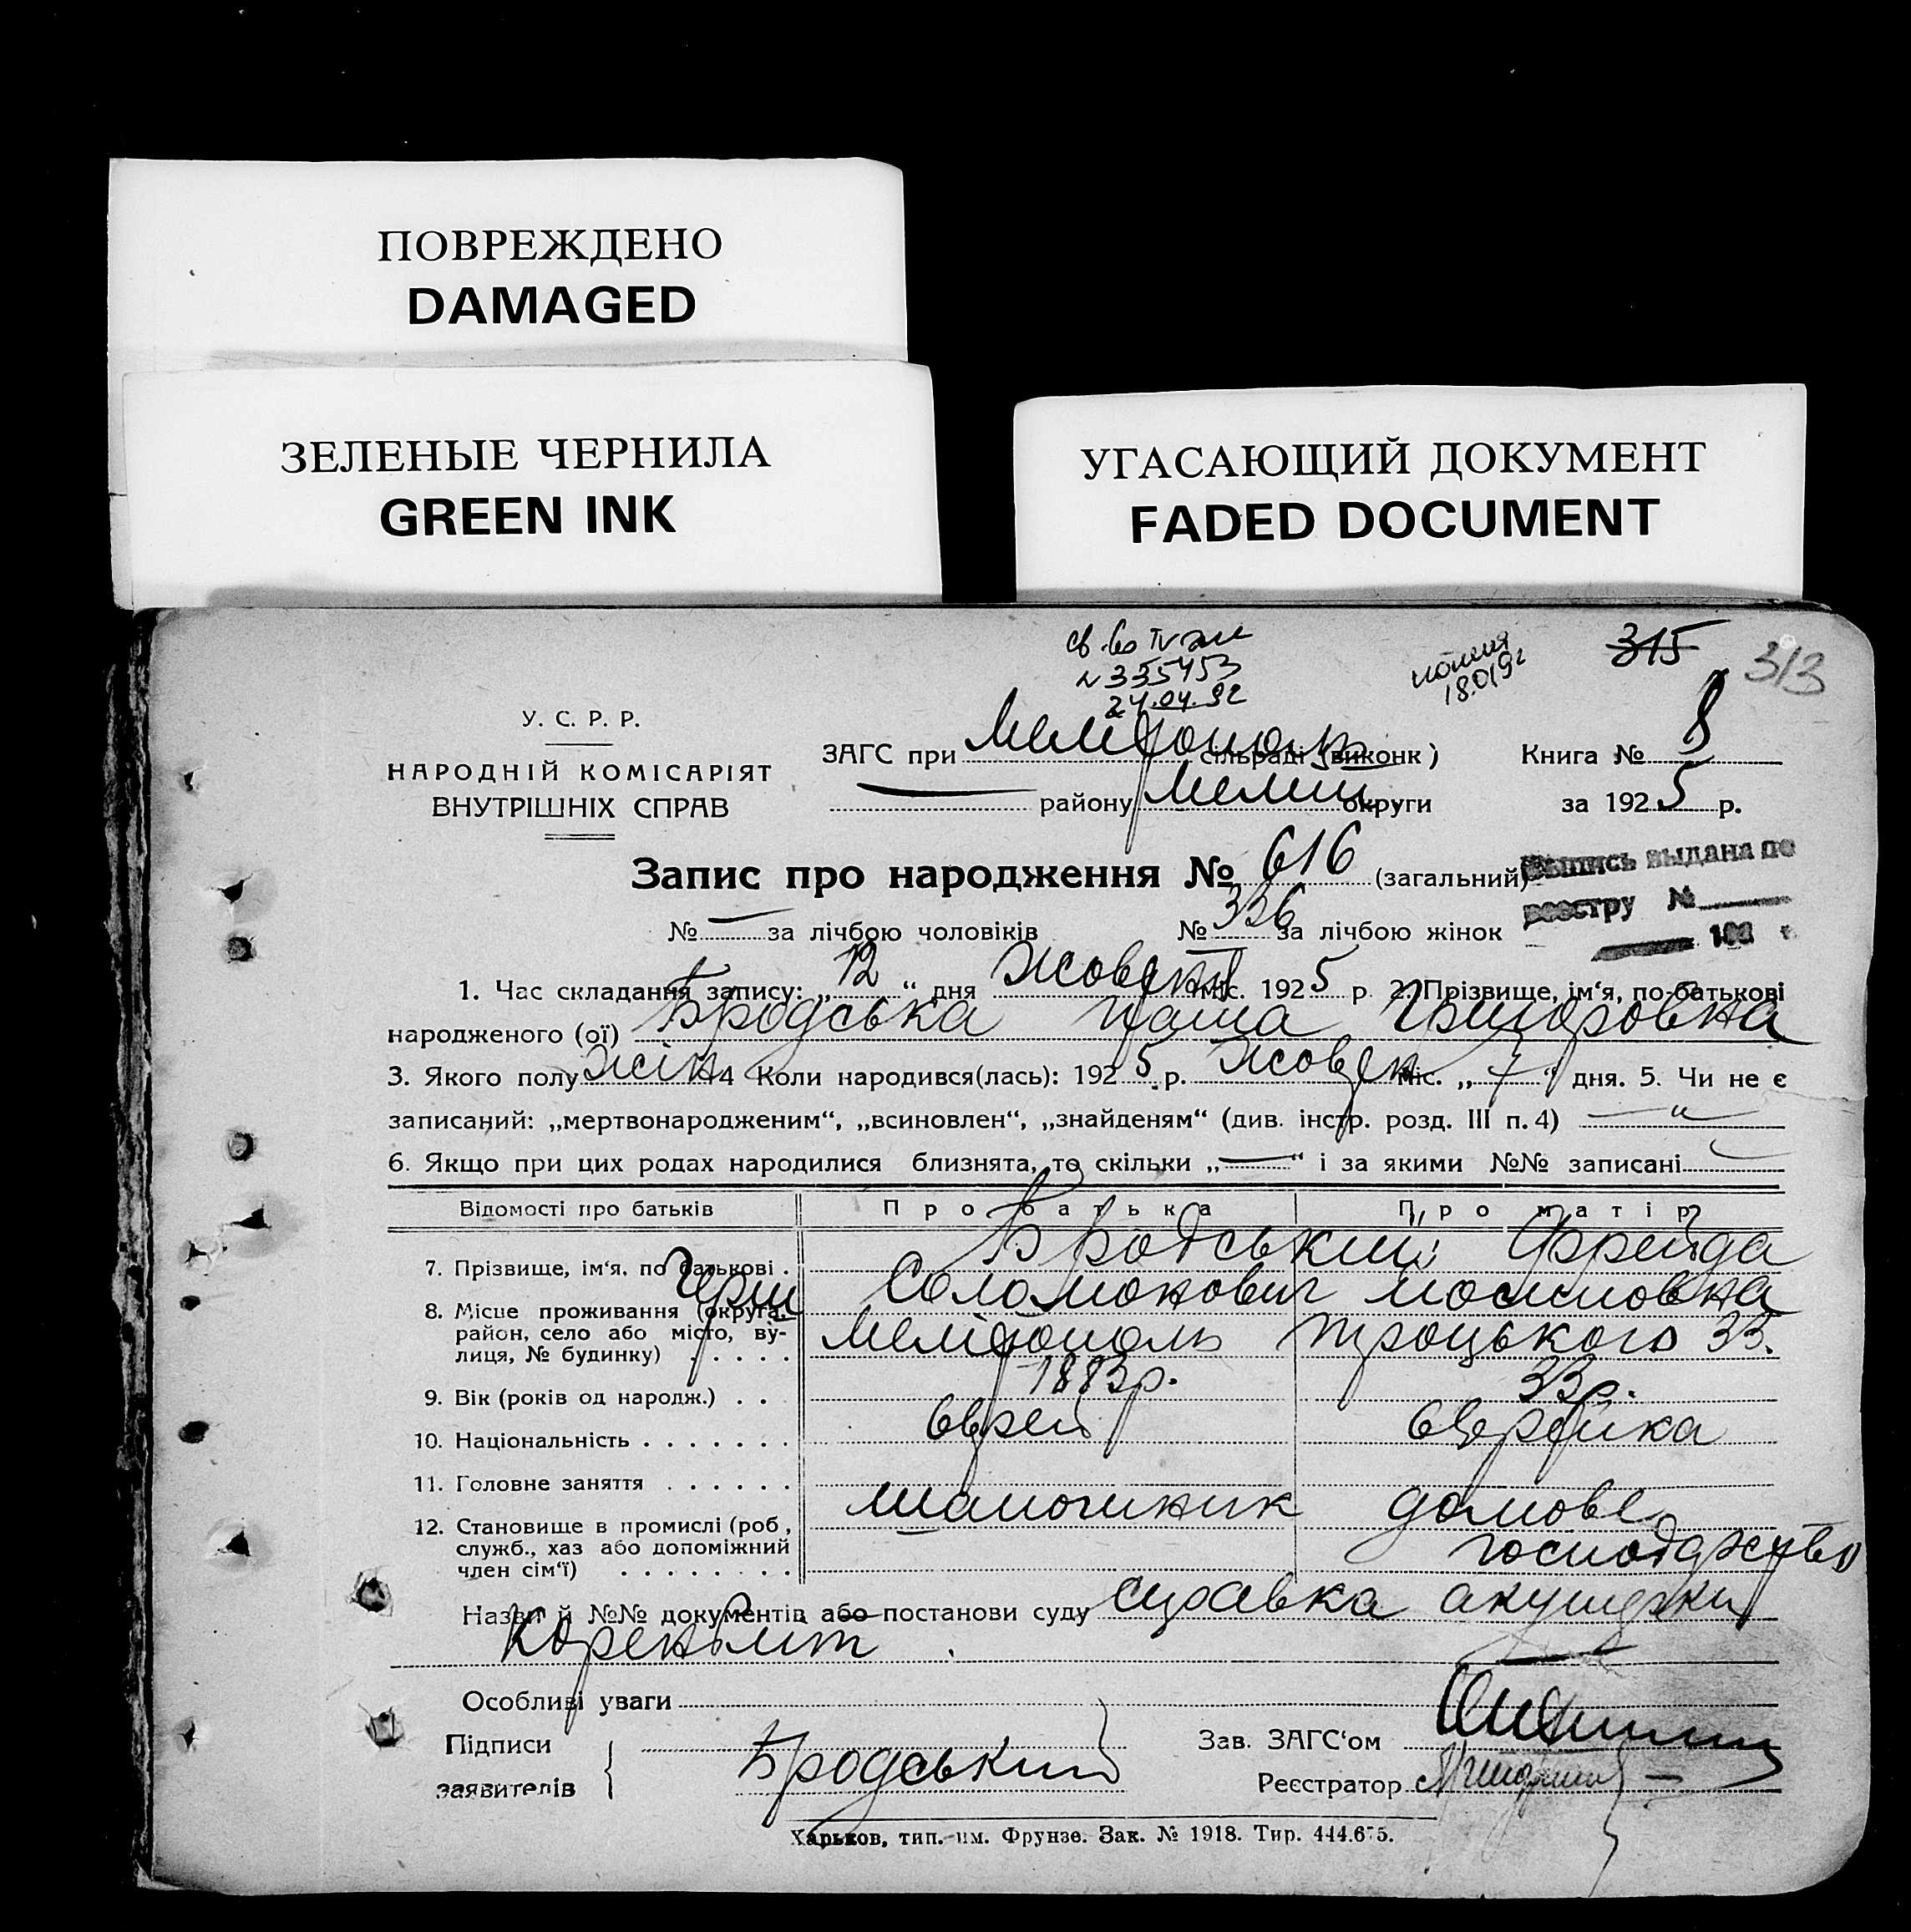 ПОВРЕЖДЕНО
DAMAGED
ЗЕЛЕНЫЕ ЧЕРНИЛА
GREEN INK
УГАСАЮЩИЙ ДОКУМЕНТ
FADED DOCUMENT
315 313
№ 335453
24.04.92
копия
У. С. Р. Р.
НАРОДНІЙ КОМІСАРІЯТ
ВНУТРІШНІХ СПРАВ
ЗАГС при Мелітопольск сільраді (виконк) Книга № 8
району Мелит. округи за 1925 р.
Запис про народження № 616 (загальний)
выдана по
реестру №
№ — за лічбою чоловіків № 336 за лічбою жінок
1. Час складання запису: „12“ дня Жовтня міс. 1925 р. 2. Прізвище, ім‘я, по-батькові
народженого (ої) Бродська Григоровна
3. Якого полу жін. 4 Коли народився(лась): 1925 р. Жовтн міс. „7“ дня. 5. Чи не є
записаний: „мертвонародженим“, „всиновлен“, „знайденям“ (див. інстр. розд. III п. 4) — „
6. Якщо при цих родах народилися близнята, то скільки „—“ і за якими №№ записані —
Відомості про батьків Про батька Про матір
7. Прізвище, ім‘я, по батькові . Бродський Фрейда
Герш Соломонович Мосиповна
8. Місце проживання (округа,
район, село або місто, ву-
лиця, № будинку) . . . . . Мелітополь Троцького 33.
9. Вік (років од народж.) . . 1883р. 33р.
10. Національність . . . . . . . еврей еврейка
11. Головне заняття . . . . . . шапошник домове
господжство
12. Становище в промислі (роб.,
служб., хаз або допоміжний
член сім‘ї) . . . . . . . .
Назви й №№ документів або постанови суду справка акушерки
Коренблит
Особливі уваги
Підписи
заявителів Бродський
Зав. ЗАГС‘ом
Реєстратор
Харьков, тип. им. Фрунзе. Зак. № 1918. Тир. 444.675.